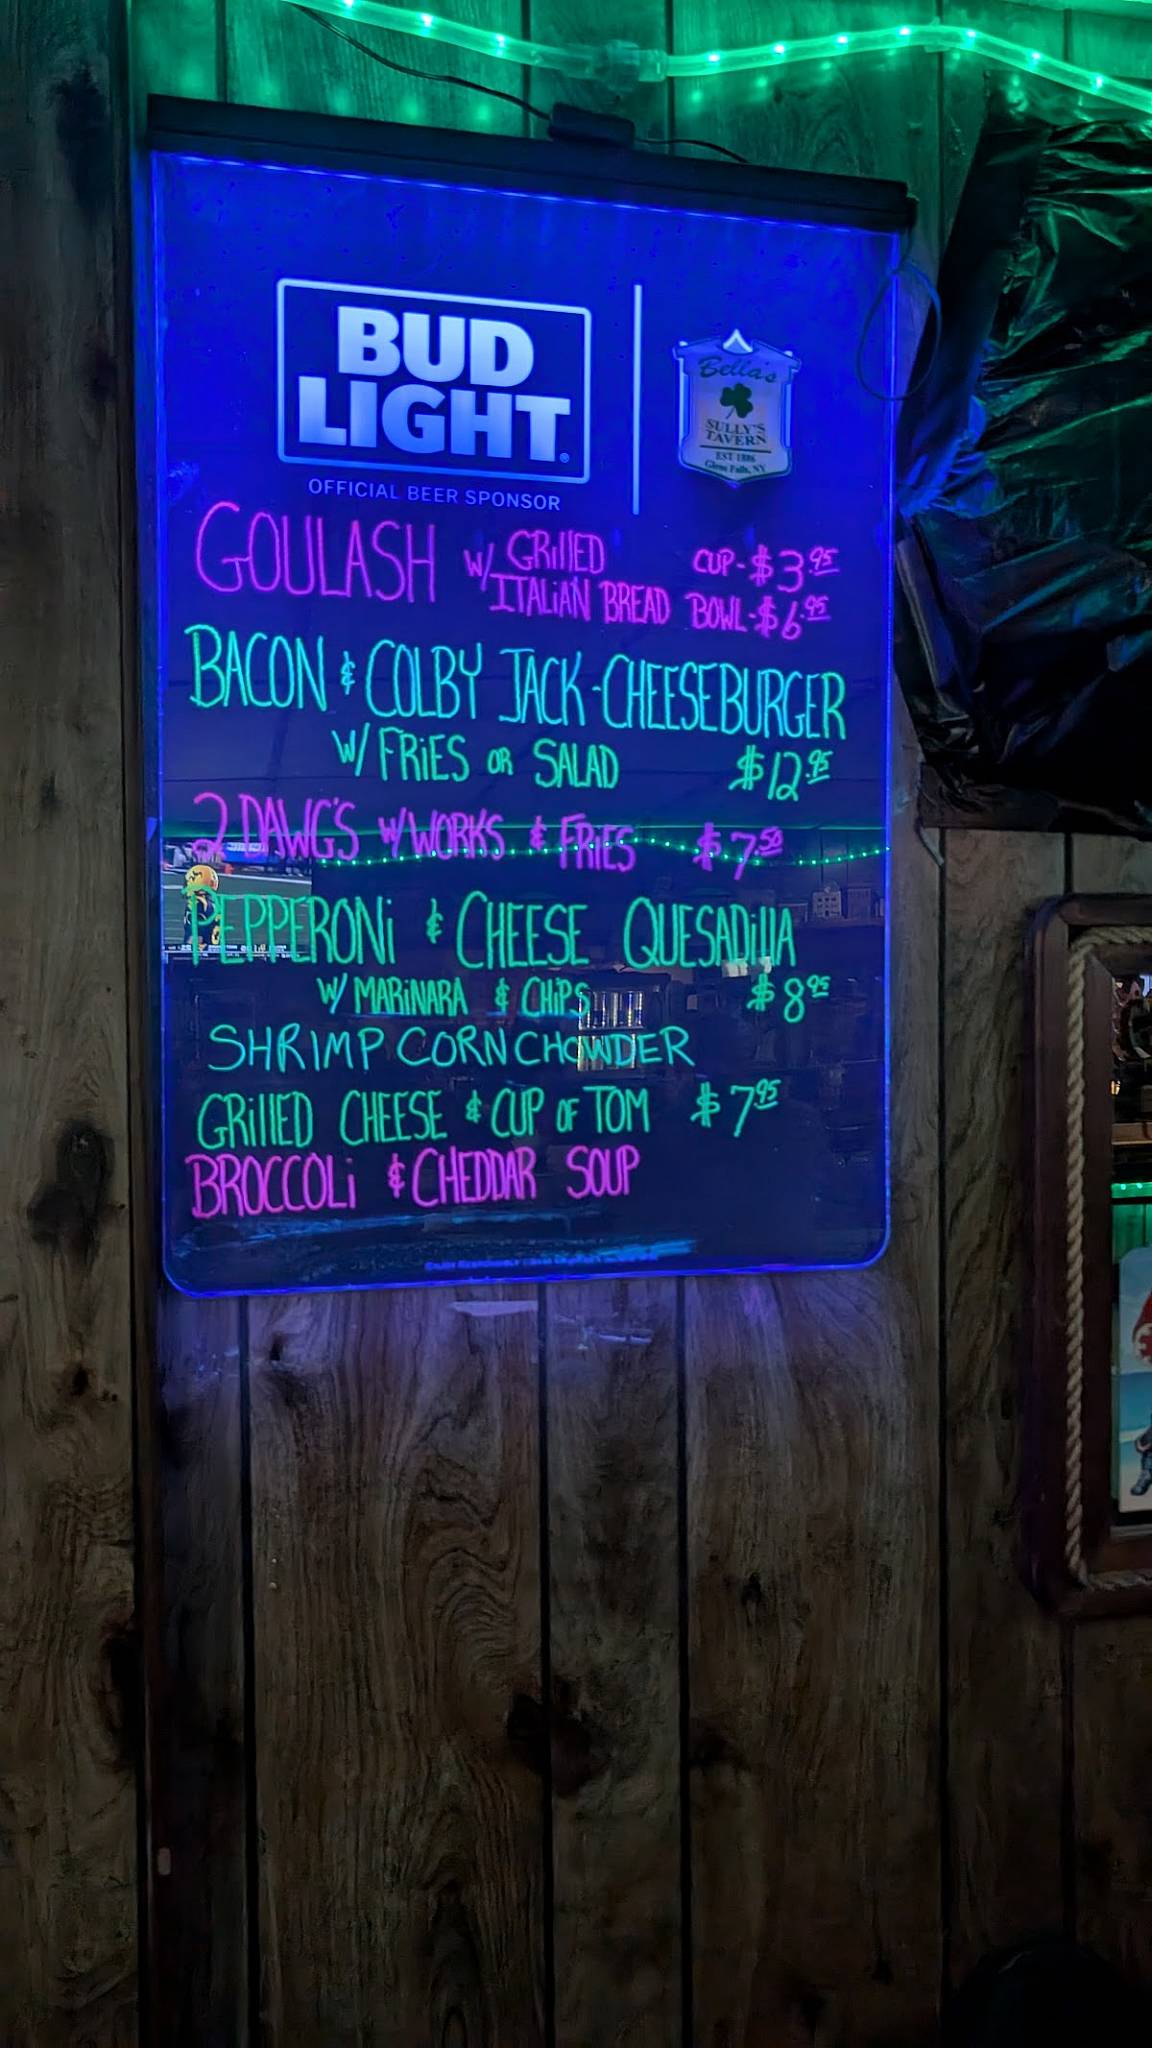 BUD
LIGHT
OFFICIAL BEER SPONSOR
Bella's
SULLY'S
TAVERN
EST 1886
Glens Falls, NY
GOULASH W/ GRIllED ITALiAN BREAD CUP-$3.95
BOWL-$6.95
BACON & COLBY JACK-CHEESEBURGER
W/ FRiES OR SALAD $12.95
2 DAWG'S W/WORKS & FRiES $7.50
PEPPERONi & CHEESE QUESADillA
W/ MARiNARA & CHiPS $8.95
SHRIMP CORN CHOWDER
GRillED CHEESE & CUP OF TOM $7.95
BROCCOLi & CHEDDAR SOUP